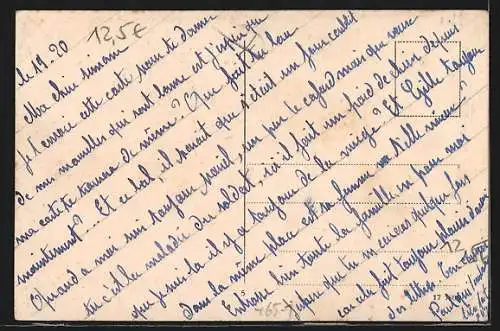 le 19. 20
12,5€
Ma chère Simone
Je t'envoie cette carte pour te donner
de mes nouvelles qui sont bonne et j'espère que
ma carte te trouve de même? Que fait tu bon
maintenant?... Et ce bal, il paraît que s'était un four complet
Quand a moi suis toujours pareil, un peu le cafard mais que veux
tu c'est la maladie du soldat, ici il fait un froid de chien depuis
que je suis la il y a toujours de la neige? Et Gille toujours
dans la même place est sa femme va t'elle mieux?
Embrasse bien toute la famille en pour moi
j'espère que tu m'écrira quelque fois
cela fait toujours plaisir d'avoir
des lettres. Ton
12,5€
465
5
17